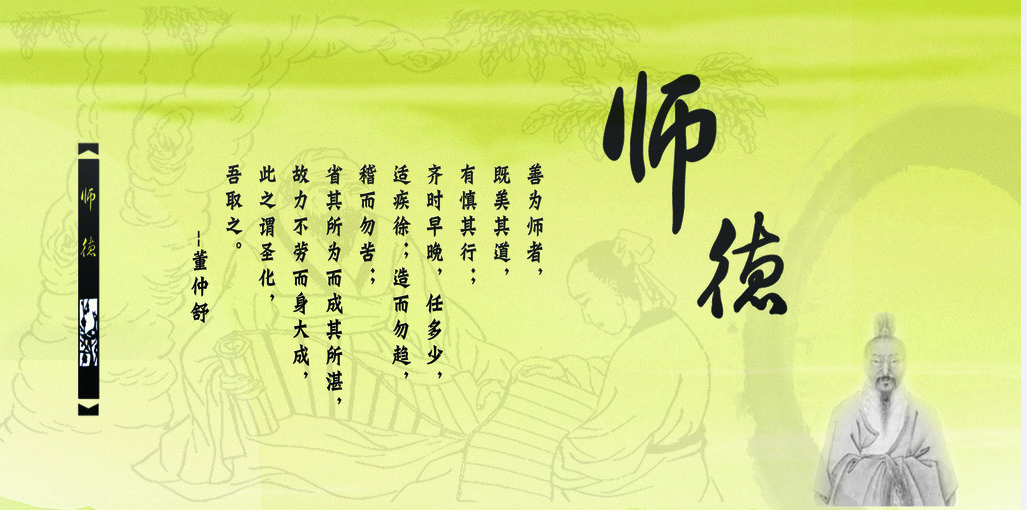 师德
善为师者，
既美其道，
有慎其行；
齐时早晚，任多少，
适疾徐；造而勿趋，
稽而勿苦；
省其所为而成其所湛，
故力不劳而身大成，
此之谓圣化，
吾取之。
--董仲舒
师德